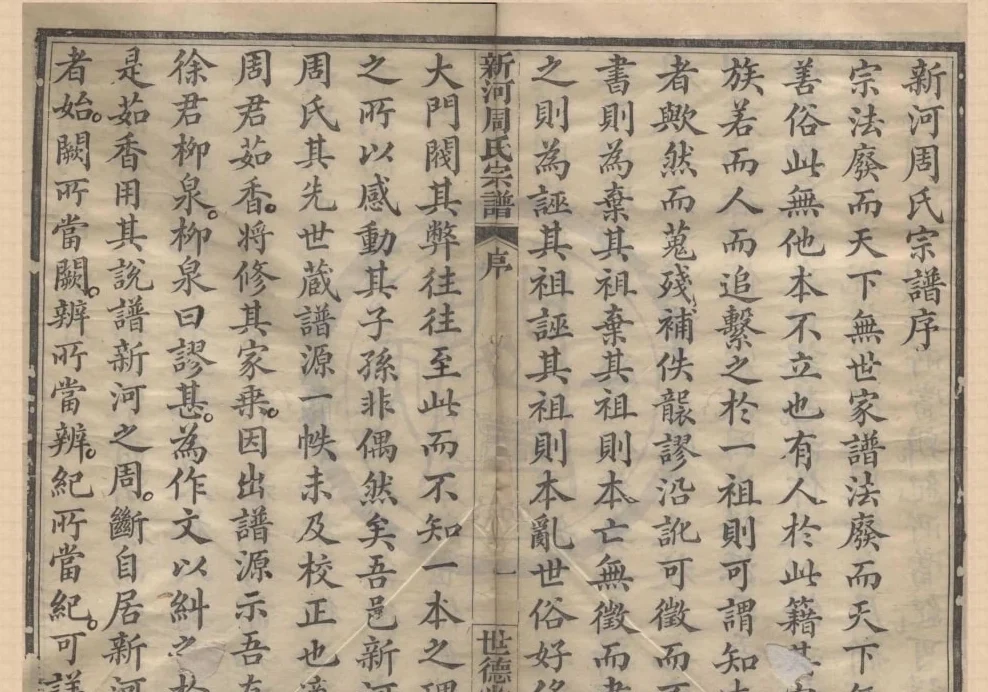 新河周氏宗譜序
宗法廢而天下無世家譜法廢而天下
善俗此無他本不立也有人於此籍其
族若而人而追繫之於一祖則可謂知
者歟然而蒐殘補佚襲謬沿訛可徵而
書則為棄其祖棄其祖則本亡無徵而
之則為誣其祖誣其祖則本亂世俗好
新河周氏宗譜
序
一
世德
大門閥其弊往往至此而不知一本之
之所以感動其子孫非偶然矣吾邑新河
周氏其先世蔵譜源一帙未及校正也
周君茹香。将修其家乗。因出譜源示吾
徐君柳泉。柳泉曰謬甚。為作文以糾之於
是茹香用其說譜新河之周。斷自居新河
者始。闕所當闕。辨所當辨。紀所當紀。可